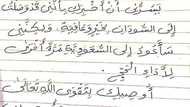 يَسُرُّنِي أَنْ أُخْبِرَكَ بِأَنَّنِي قَدْ وَصَلْتُ
إِلَى السُّودَانِ بِخَيْرٍ وَعَافِيَةٍ. وَلَكِنَّنِي
سَأَعُودُ إِلَى السَّعُودِيَّةِ مَرَّةً أُخْرَى
لِأَدَاءِ الْحَجِّ.
أُوصِيكَ بِتَقْوَى اللَّهِ تَعَالَى